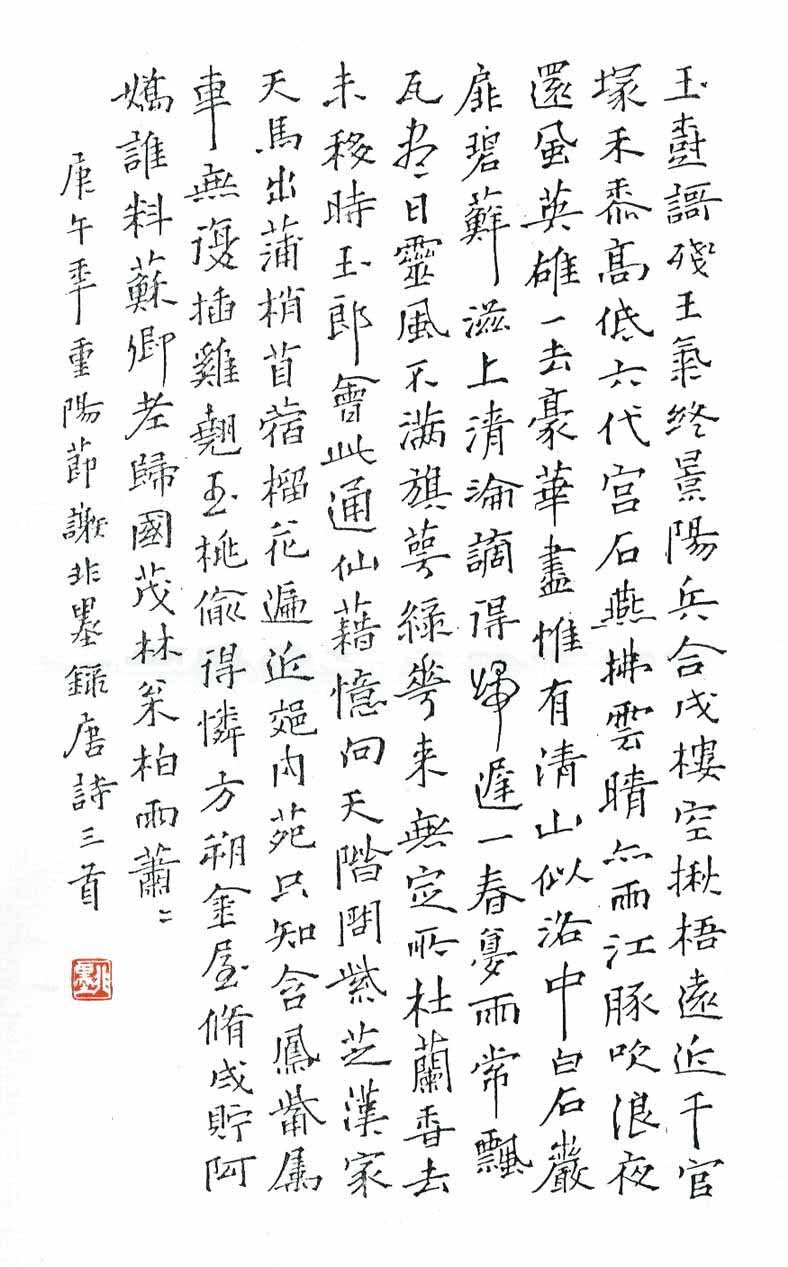 玉樹謌殘王氣終景陽兵合戍樓空楸梧遠近千官
塚禾黍高低六代宫石燕拂雲晴亦雨江豚吹浪夜
還風英雄一去豪華盡惟有清山似洛中白石巖
扉碧蘚滋上清淪謫得歸遲一春夢雨常飄
瓦盡日靈風不滿旗萼綠華来無定所杜蘭香去
未移時玉郎會此通仙藉憶向天階問紫芝漢家
天馬出蒲梢苜蓿榴花遍近郊内苑只知含鳳觜属
車無復插雞翹玉桃偷得憐方朔金屋脩成貯阿
嬌誰料蘇卿老歸國茂林松柏雨蕭〻
庚午年重陽節謝非墨錄唐詩三首
非墨